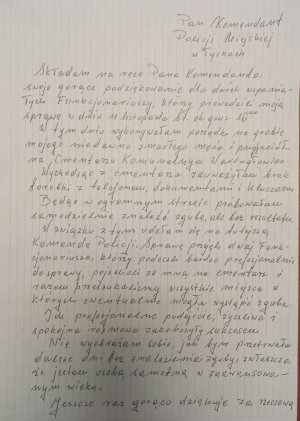 Pan Komendant
Policji Miejskiej
w Tychach
Składam na ręce Pana Komendanta
swoje gorące podziękowanie dla dwóch wspania-
łych Funkcjonariuszy, którzy prowadzili moją
sprawę w dniu 11 listopada br. ok. godz. 16⁰⁰
W tym dniu wykonywałam porządki na grobie
mojego niedawno zmarłego męża i przyjaciela
na Cmentarzu Komunalnym Wartogłowiec.
Wychodząc z cmentarza zauważyłam brak
torebki z telefonem, dokumentami i kluczami.
Będąc w ogromnym stresie próbowałam
samodzielnie znaleźć zgubę, ale bez rezultatu.
W związku z tym udałam się na tutejszą
Komendę Policji. Sprawę przyjęli dwaj Funk-
cjonariusze, którzy podeszli bardzo profesjonalnie
do sprawy, pojechali ze mną na cmentarz i
razem przeszukaliśmy wszystkie miejsca w
których ewentualnie mogła wystąpić zguba.
Ich profesjonalne podejście, życzliwa i
spokojna rozmowa zakończyły sukcesem.
Nie wyobrażam sobie, jak bym przetrwała
dalsze dni bez znalezienia zguby, zwłaszcza
że jestem osobą samotną w zaawansowa-
nym wieku.
Jeszcze raz gorąco dziękuję za rzeczową